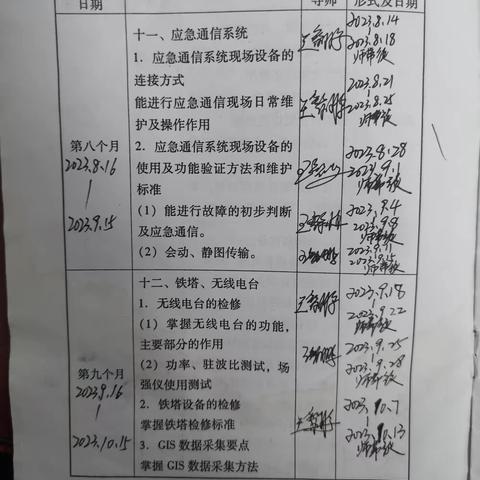 日期
导师
形式及日期
第八个月
2023.8.16
2023.9.15
十一、应急通信系统
1. 应急通信系统现场设备的
连接方式
能进行应急通信现场日常维
护及操作作用
2. 应急通信系统现场设备的
使用及功能验证方法和维护
标准
(1) 能进行故障的初步判断
及应急通信。
(2) 会动、静图传输。
2023.8.14
2023.8.18
师带徒
2023.8.21
2023.8.25
师带徒
2023.8.28
2023.9.1
师带徒
2023.9.4
2023.9.8
师带徒
2023.9.11
2023.9.15
师带徒
第九个月
2023.9.16
2023.10.15
十二、铁塔、无线电台
1. 无线电台的检修
(1) 掌握无线电台的功能，
主要部分的作用
(2) 功率、驻波比测试，场
强仪使用测试
2. 铁塔设备的检修
掌握铁塔检修标准
3. GIS 数据采集要点
掌握 GIS 数据采集方法
2023.9.18
2023.9.22
师带徒
2023.9.25
2023.9.28
师带徒
2023.10.7
2023.10.13
师带徒